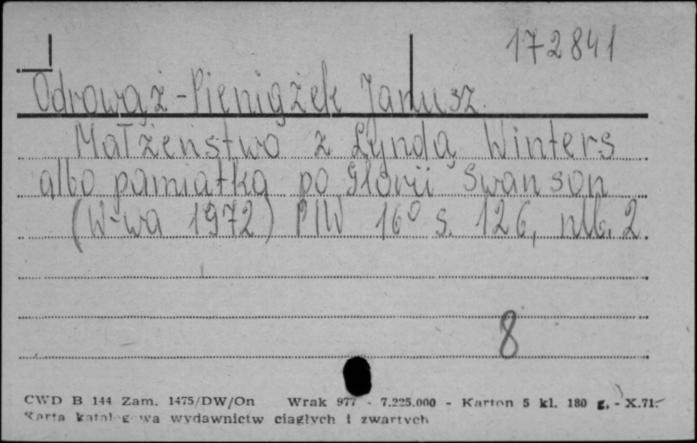 172841
Odrowąż-Pieniążek Janusz.
Małżeństwo z Lyndą Winters
albo pamiątka po Glorii Swanson
(W-wa 1972) PIW 16° s. 126, nlb. 2.
8
CWD B 144 Zam. 1475/DW/On Wrak 977 - 7.225.000 - Karton 5 kl. 180 g, - X.71.
Karta katalogowa wydawnictw ciągłych i zwartych